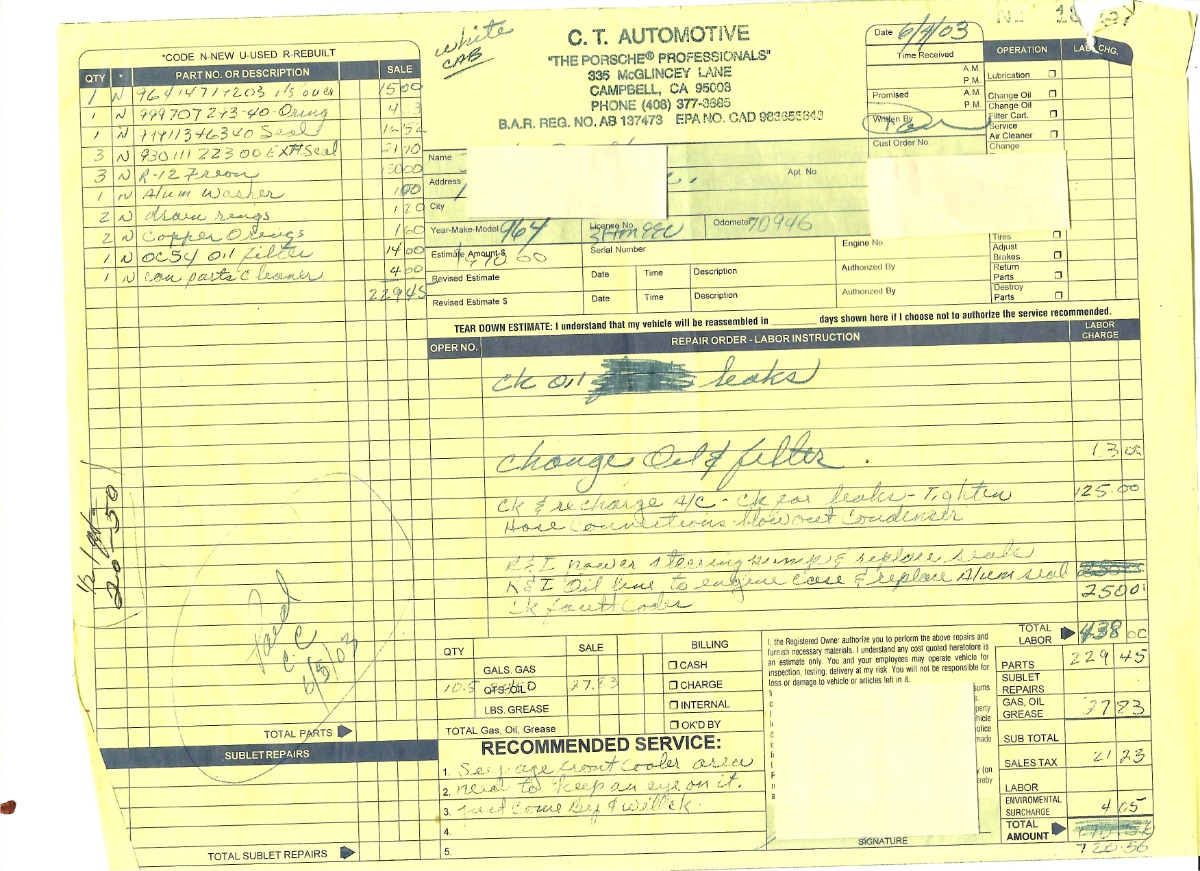 white
CAB
C. T. AUTOMOTIVE
"THE PORSCHE® PROFESSIONALS"
335 McGLINCEY LANE
CAMPBELL, CA 95008
PHONE (408) 377-3865
B.A.R. REG. NO. AB 137473 EPA NO. CAD 983655643
Date 6/4/03
Time Received
A.M.
P.M.
Promised A.M.
P.M.
Written By
Cust Order No.
OPERATION LAB. CHG.
Lubrication
Change Oil
Change Oil
Filter Cart.
Service
Air Cleaner
Change
Tires
Adjust
Brakes
Return
Parts
Destroy
Parts
*CODE N-NEW U-USED R-REBUILT
QTY * PART NO. OR DESCRIPTION SALE
1 N 15 00
1 N 999707273-40-Oring
1 N 99911346340 Seal 16 52
3 N 930 111 223 00 EXH Seal 21 70
3 N R-12 Freon 150 00
1 N Alum Washer 1 00
2 N drain rings 1 20
2 N Copper O rings 1 60
1 N OC54 oil filter 14 00
1 N can parts Cleaner 4 00
229 45
Name
Address Apt. No.
City
Year-Make-Model 964 License No. Odometer 70946
Estimate Amount $ Serial Number Engine No
Revised Estimate Date Time Description Authorized By
Revised Estimate $ Date Time Description Authorized By
TEAR DOWN ESTIMATE: I understand that my vehicle will be reassembled in ________ days shown here if I choose not to authorize the service recommended.
OPER NO. REPAIR ORDER - LABOR INSTRUCTION LABOR CHARGE
ck oil leaks
change Oil & filter . 13 00
ck & recharge A/C - ck for leaks - Tighten 125.00
Hose Connections blow out Condenser
R&I power steering pump & replace seals
R&I Oil line to engine case & replace Alum seal
ck fault Codes 250 0
20-50
Paid
CC
6/5/03
TOTAL LABOR 438 00
QTY SALE BILLING
GALS. GAS CASH
10.5 QTS. OIL 27.83 CHARGE
LBS. GREASE INTERNAL
TOTAL Gas, Oil, Grease OK'D BY
I, the Registered Owner authorize you to perform the above repairs and
furnish necessary materials. I understand any cost quoted heretofore is
an estimate only. You and your employees may operate vehicle for
inspection, testing, delivery at my risk. You will not be responsible for
loss or damage to vehicle or articles left in it.
PARTS 229 45
SUBLET REPAIRS
GAS, OIL GREASE 27 83
SUB TOTAL
SALES TAX 21 23
LABOR
ENVIROMENTAL SURCHARGE 4 05
TOTAL AMOUNT
720.56
TOTAL PARTS
SUBLET REPAIRS
TOTAL SUBLET REPAIRS
RECOMMENDED SERVICE:
1. Seepage front Cooler area
2. need to keep an eye on it.
3. just come by & will ck.
4.
5.
SIGNATURE